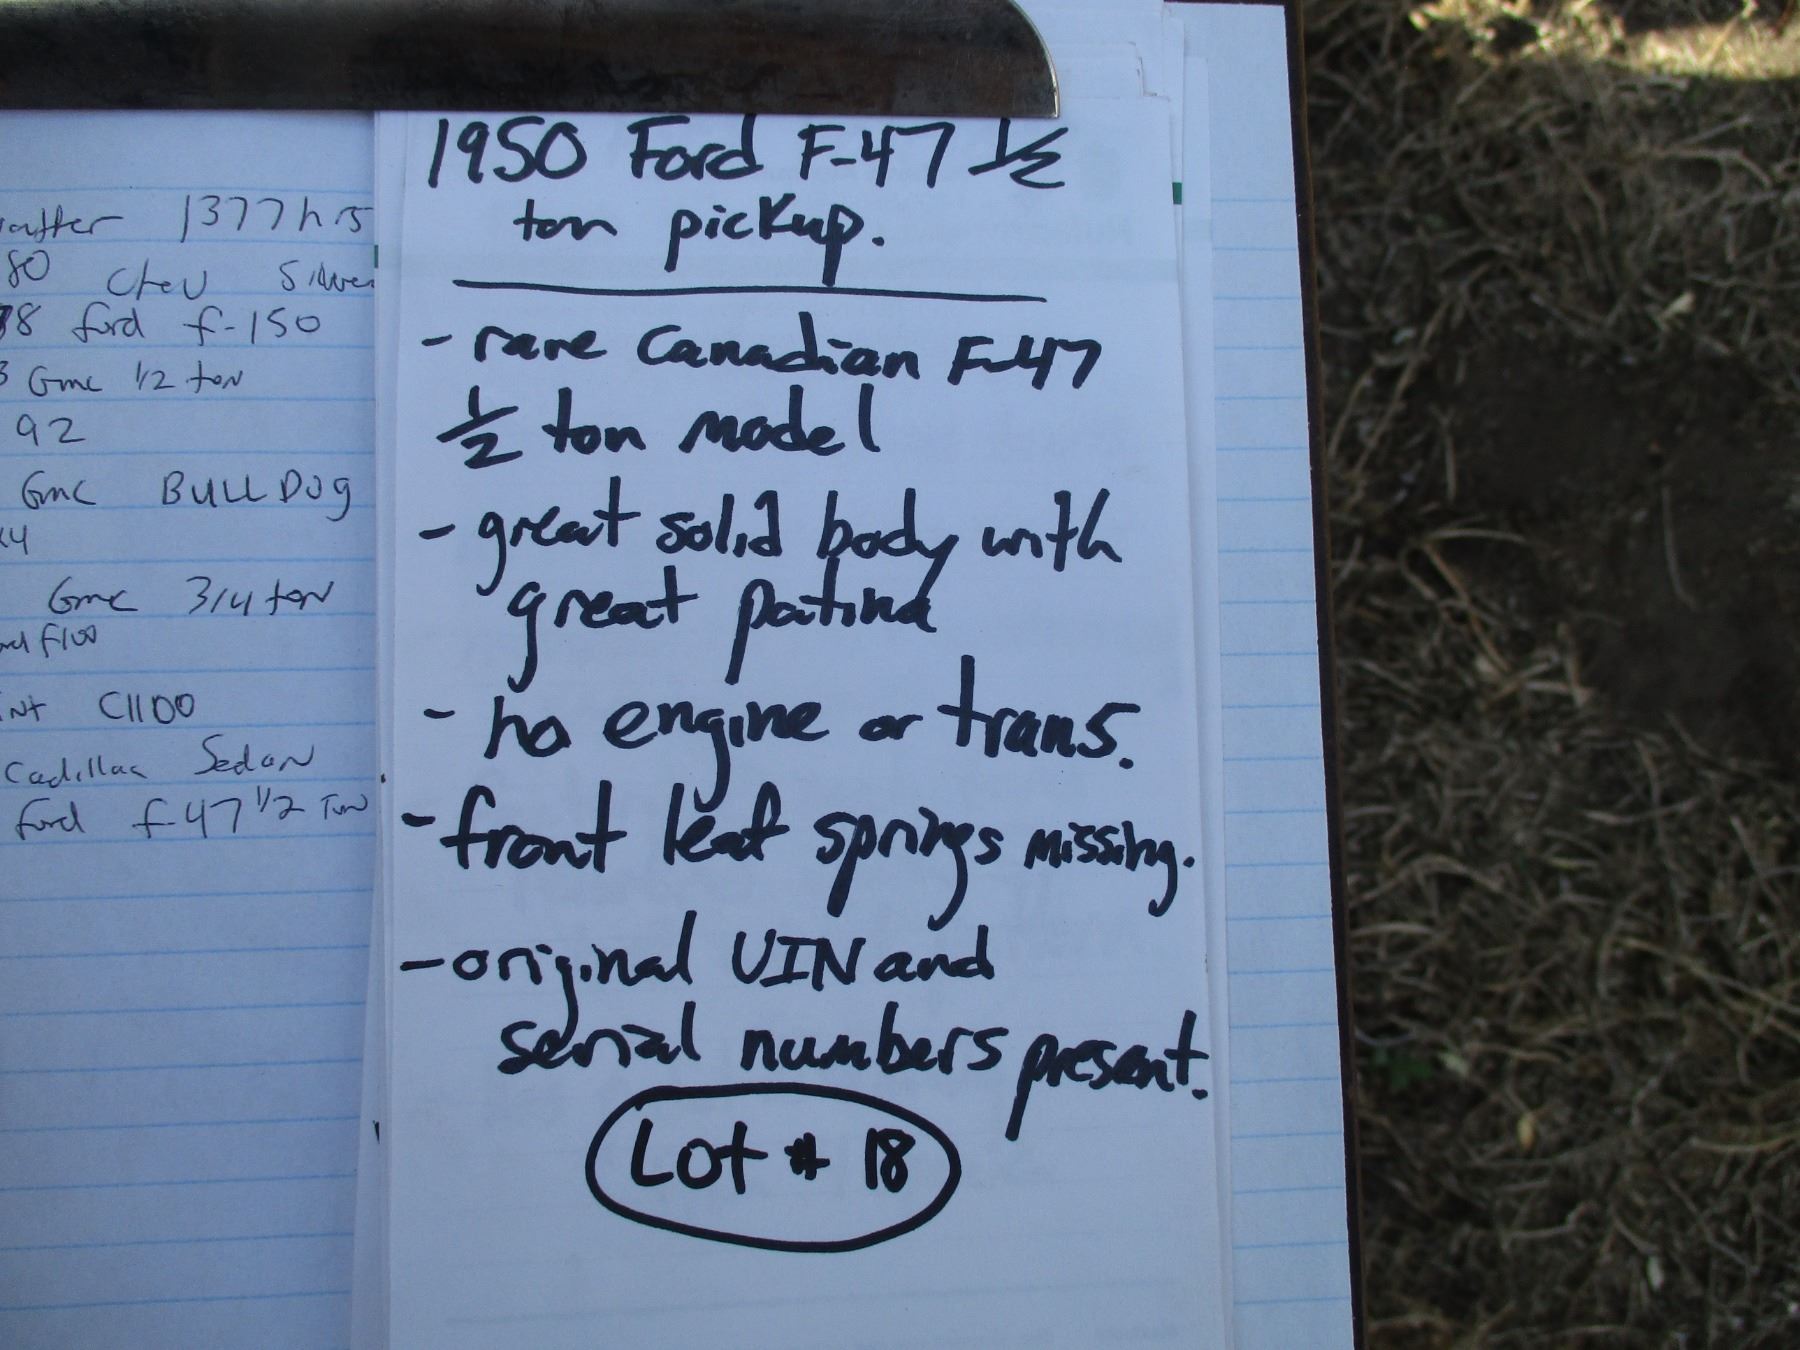 1950 Ford F-47 1/2
ton pickup.
- rare Canadian F-47
1/2 ton model
- great solid body with
great patina
- no engine or trans.
- front leaf springs missing.
- original VIN and
serial numbers present.
Lot # 18
1377 hrs
80 Chev
78 Ford F-150
3 Gmc 1/2 ton
92
Gmc BULLDOg
x4
Gmc 3/4 ton
F100
C1100
Cadillac Sedan
Ford F-47 1/2 Ton